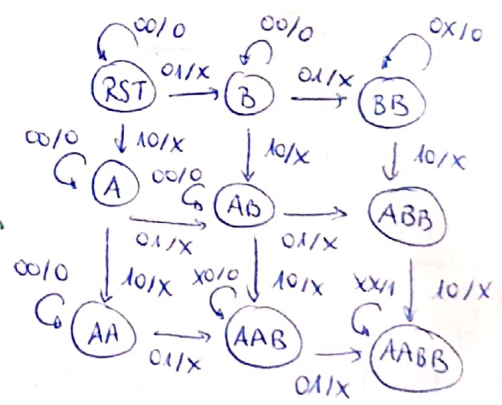 00/0 00/0 0X/0
RST 01/X B 01/X BB
10/X 10/X 10/X
00/0 A 00/0 AB ABB
01/X 01/X
00/0 10/X X0/0 10/X XX/1 10/X
AA AAB AABB
01/X 01/X